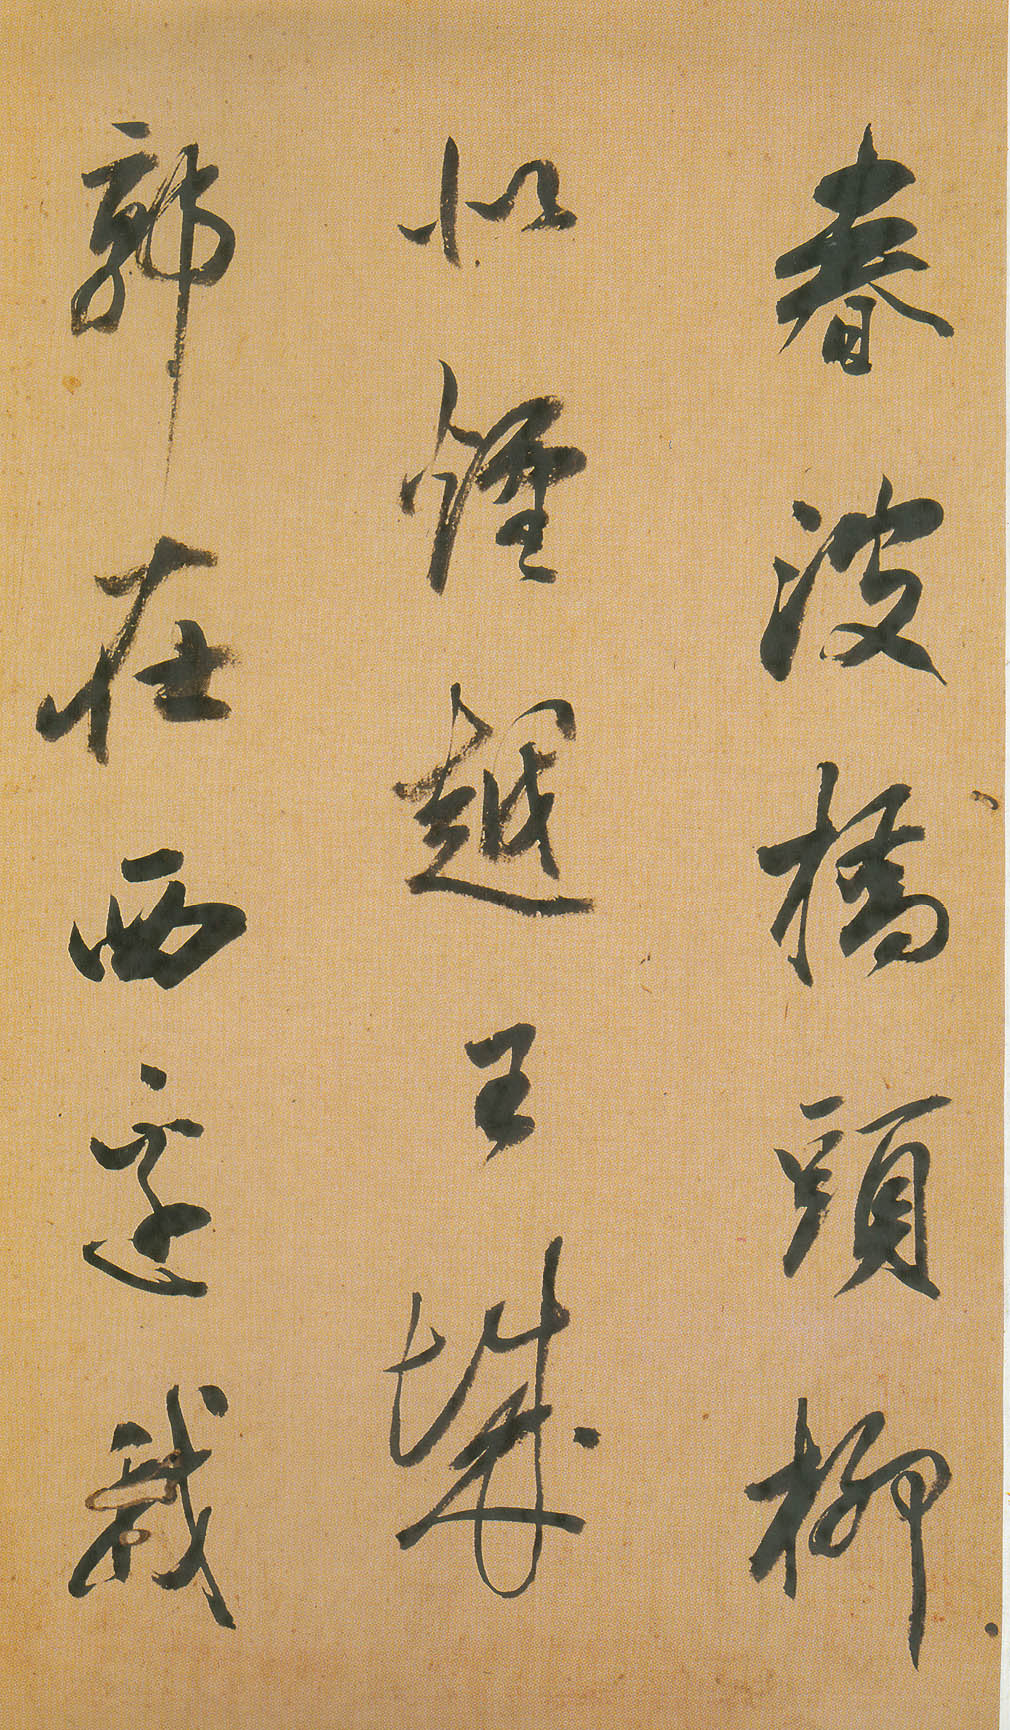 春波橋頭柳
似煙越王城
郭在西邊